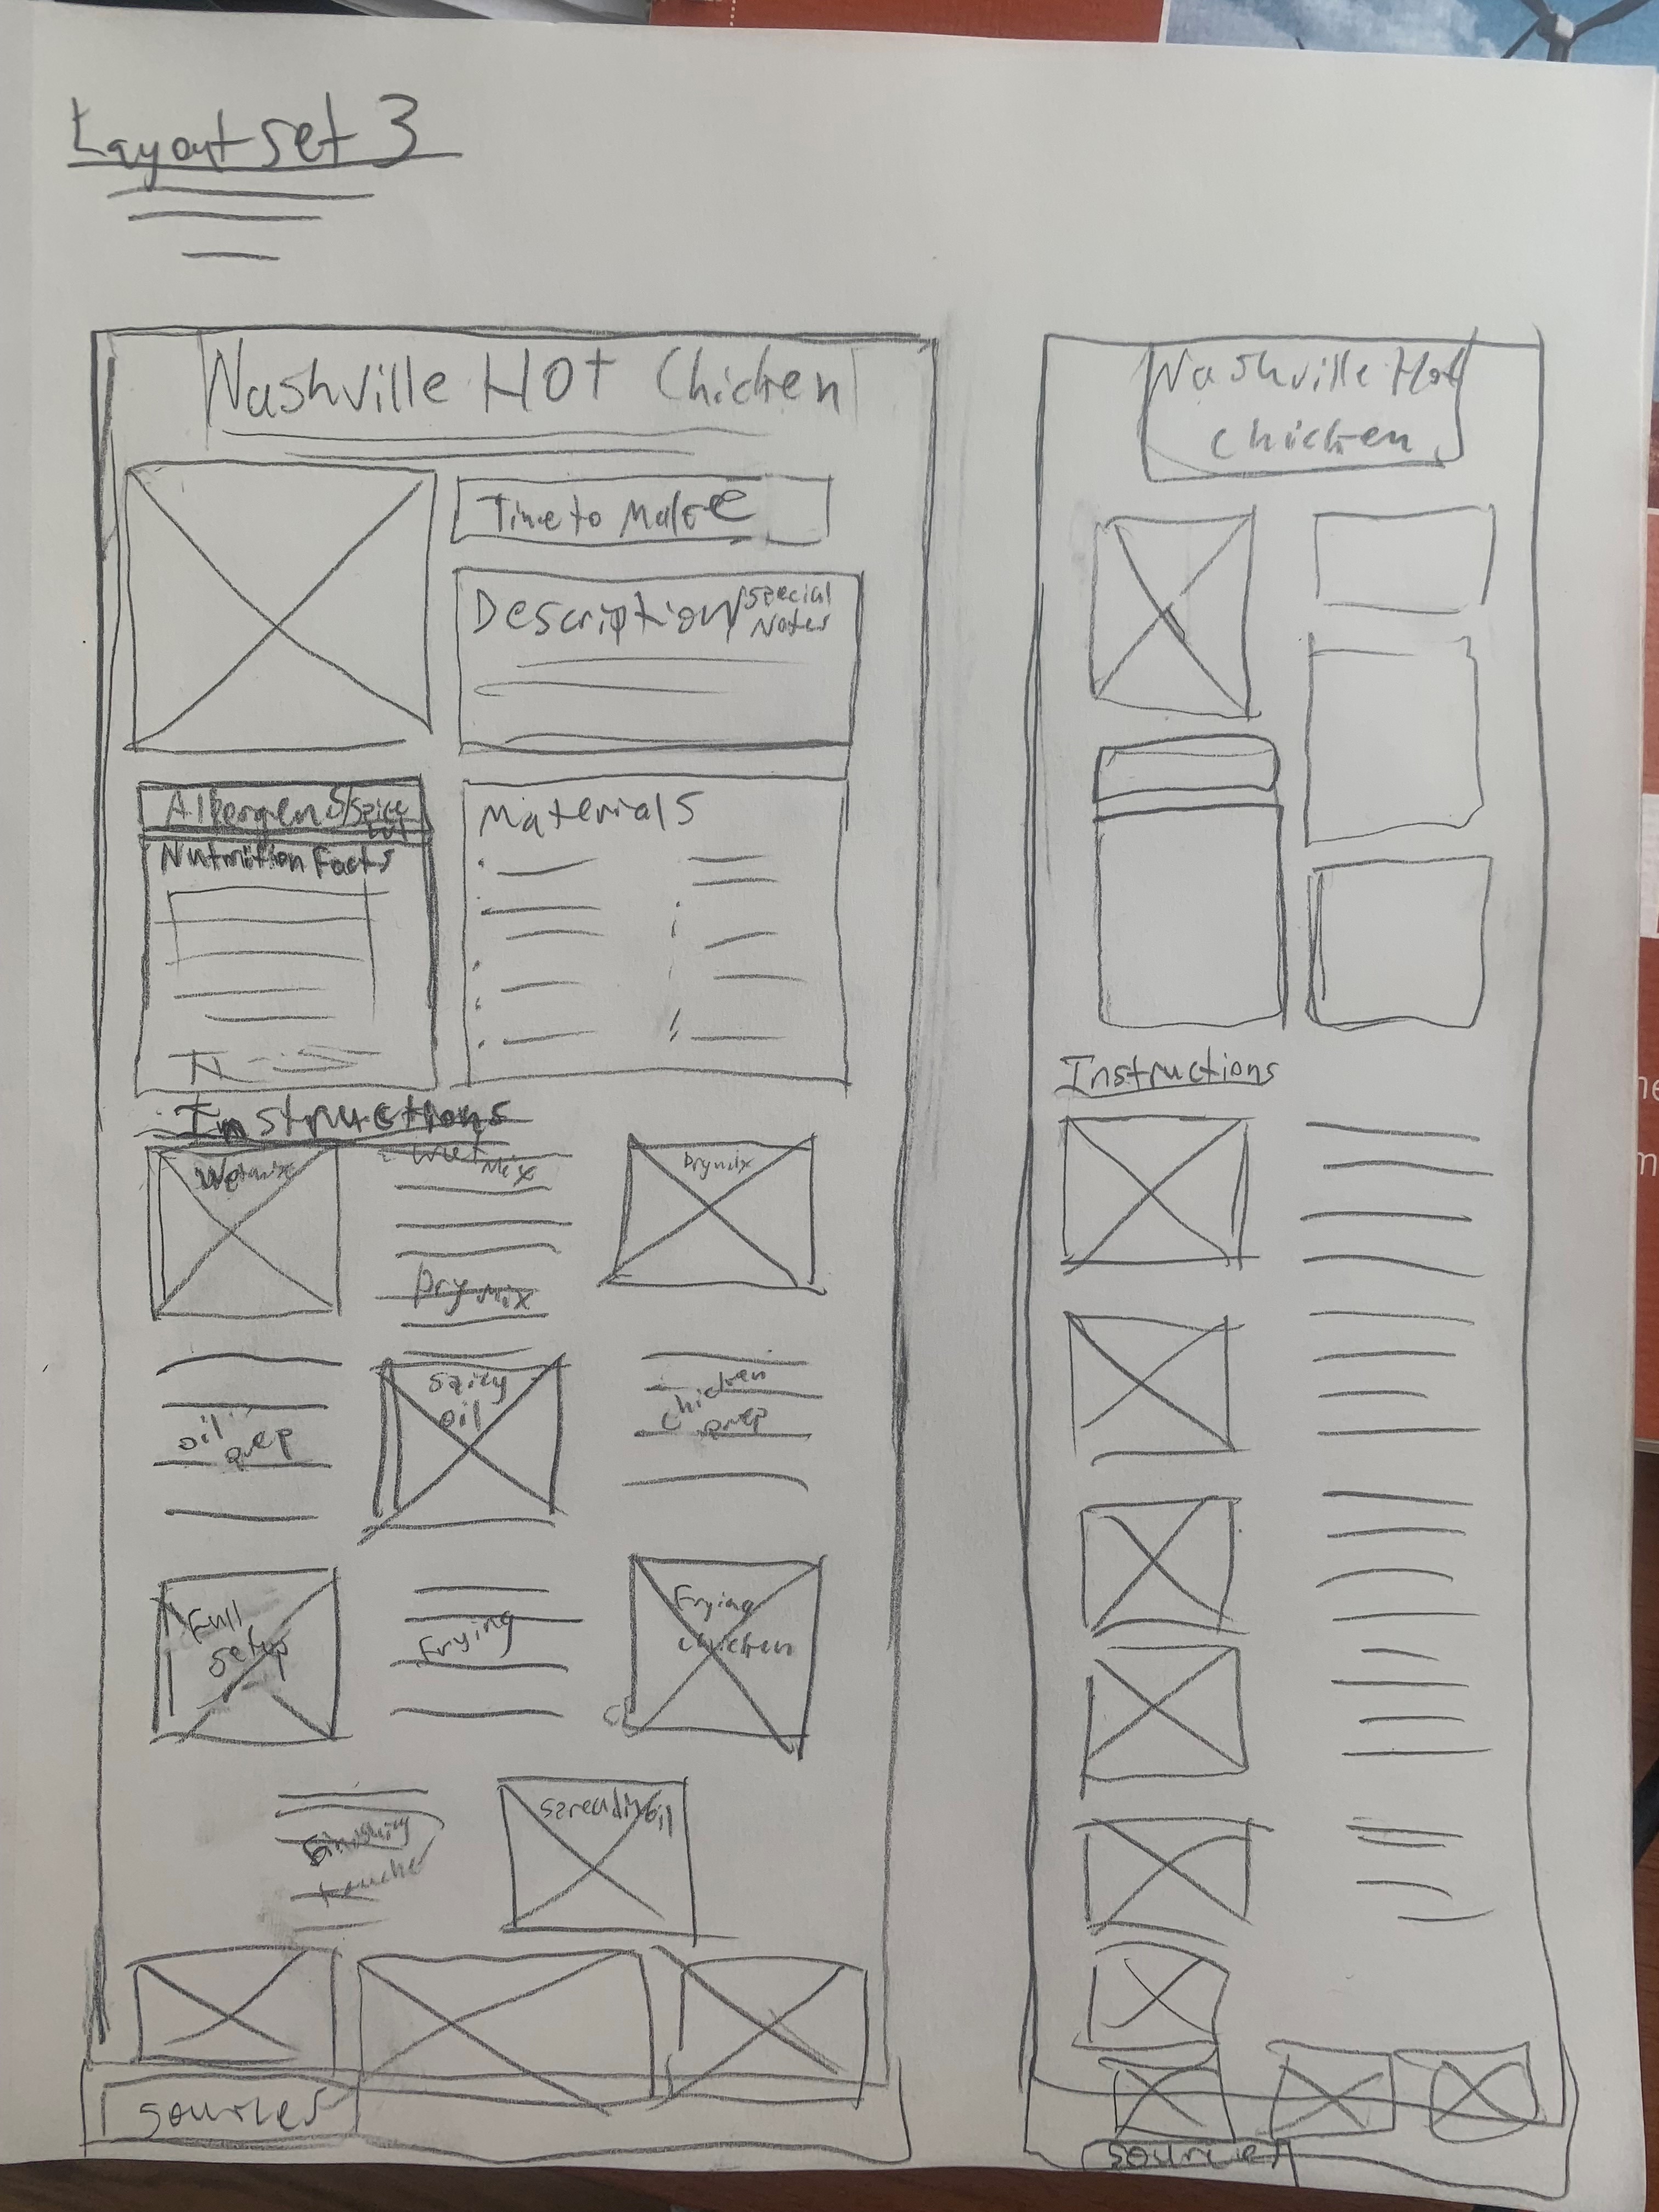 Layout Set 3
Nashville Hot Chicken
Time to Make
Description/Special
Notes
Allergens/Spice
lvl
Nutrition Facts
Materials
Instructions
Wetmix
Wet Mix
Drymix
Dry Mix
oil
prep
Spicy
oil
Chicken
prep
Full
Setup
Frying
Frying
Chicken
Finishing
touches
Spreading oil
Sources
Nashville Hot
Chicken
Instructions
Sources